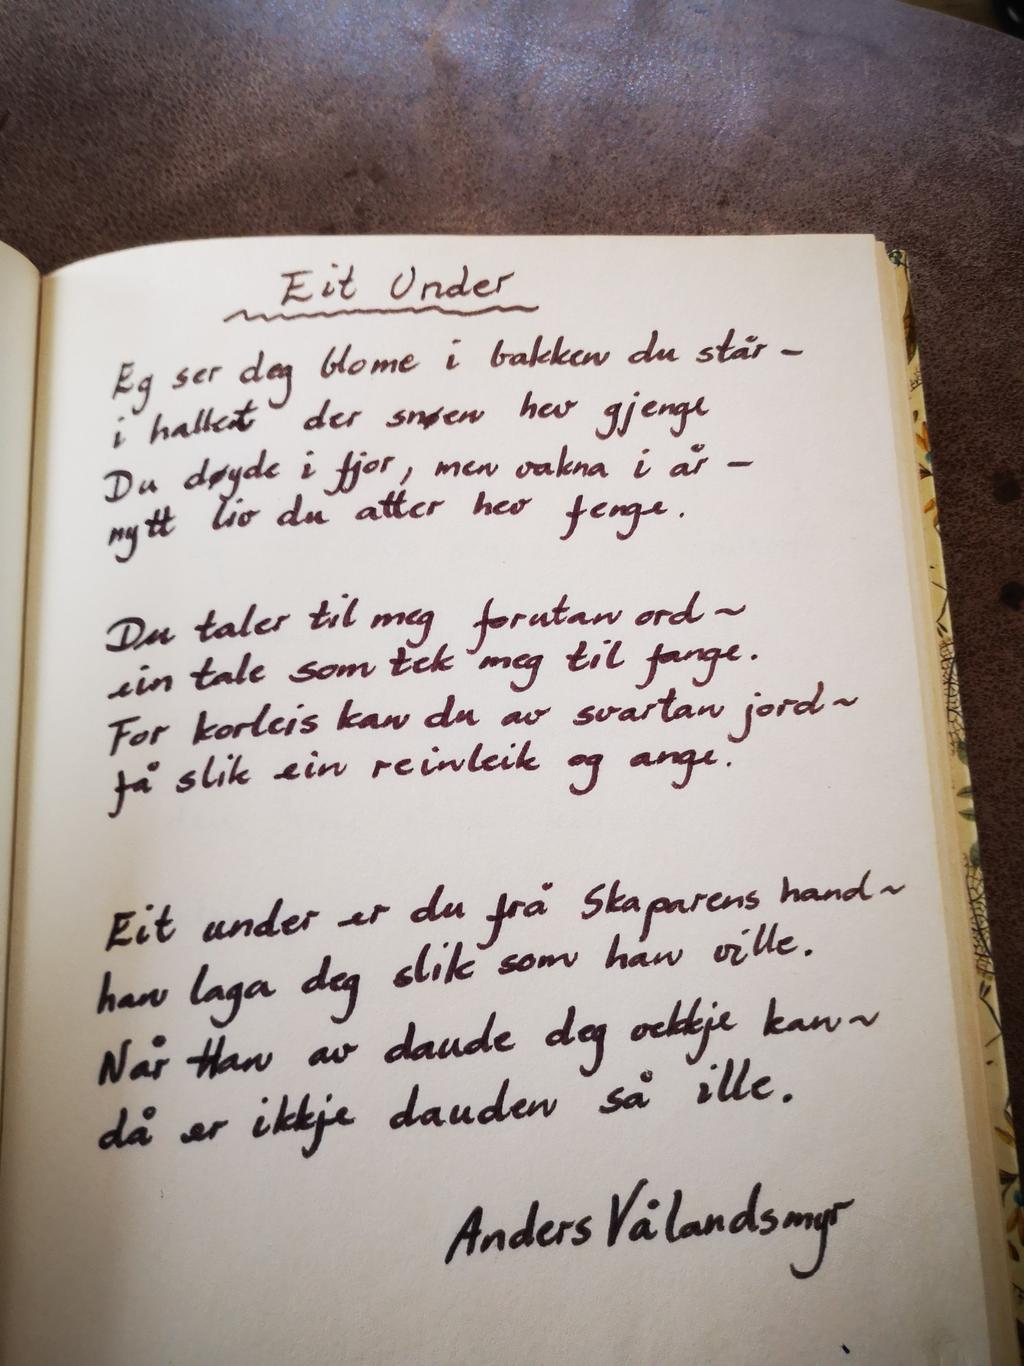 Eit Under
Eg ser deg blome i bakken du står –
i hallet der snøen hev gjenge
Du døyde i fjor, men vakna i år –
nytt liv du atter hev fenge.
Du taler til meg forutan ord ~
ein tale som tek meg til fange.
For korleis kan du av svartan jord ~
få slik ein reinleik og ange.
Eit under er du frå Skaparens hand ~
han laga deg slik som han ville.
Når Han av daude deg vekkje kan ~
då er ikkje dauden så ille.
Anders Vålandsmyr